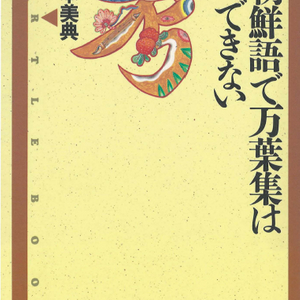 朝鮮語で万葉集は
できない
美典
RTLE BOO